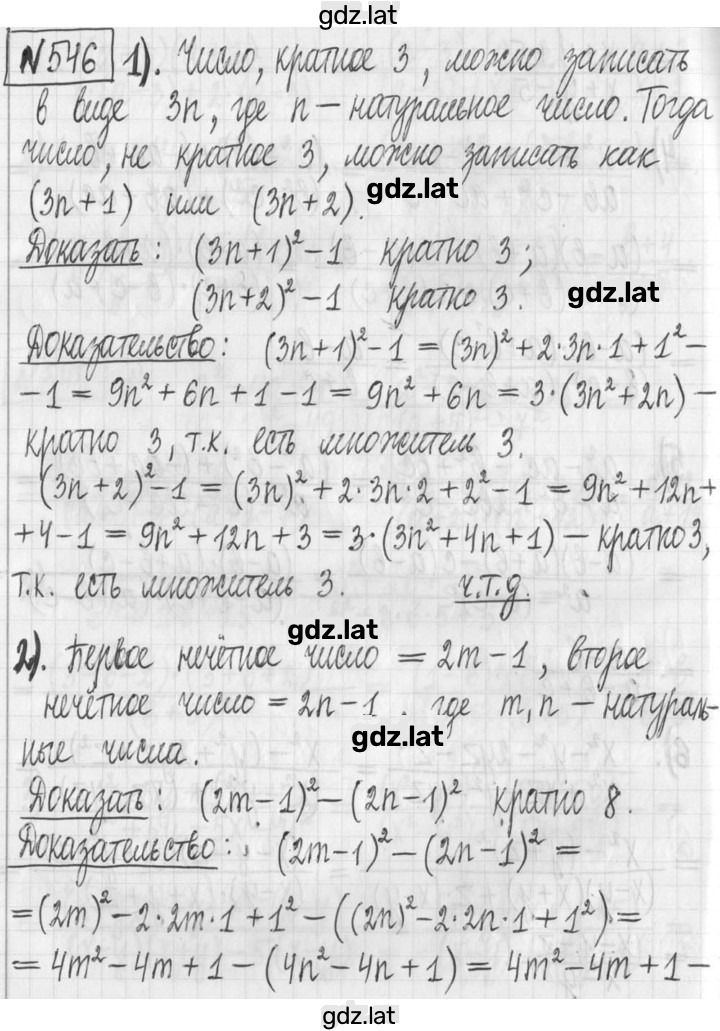 gdz.lat
№546 1). Число, кратное 3, можно записать
в виде 3n, где n – натуральное число. Тогда
число, не кратное 3, можно записать как
gdz.lat
(3n+1) или (3n+2).
Доказать: (3n+1)²-1 кратно 3;
(3n+2)²-1 кратно 3.
gdz.lat
Доказательство: (3n+1)²-1 = (3n)²+2·3n·1+1²-
-1 = 9n²+6n+1-1 = 9n²+6n = 3·(3n²+2n) –
кратно 3, т.к. есть множитель 3.
(3n+2)²-1 = (3n)²+2·3n·2+2²-1 = 9n²+12n+
+4-1 = 9n²+12n+3 = 3·(3n²+4n+1) – кратно 3,
т.к. есть множитель 3. ч.т.д.
gdz.lat
2). Первое нечётное число = 2m-1, второе
нечётное число = 2n-1, где m, n – натураль-
gdz.lat
ные числа.
Доказать: (2m-1)²-(2n-1)² кратно 8.
Доказательство: (2m-1)²-(2n-1)² =
=(2m)²-2·2m·1+1²-((2n)²-2·2n·1+1²) =
= 4m²-4m+1-(4n²-4n+1) = 4m²-4m+1-
gdz.lat